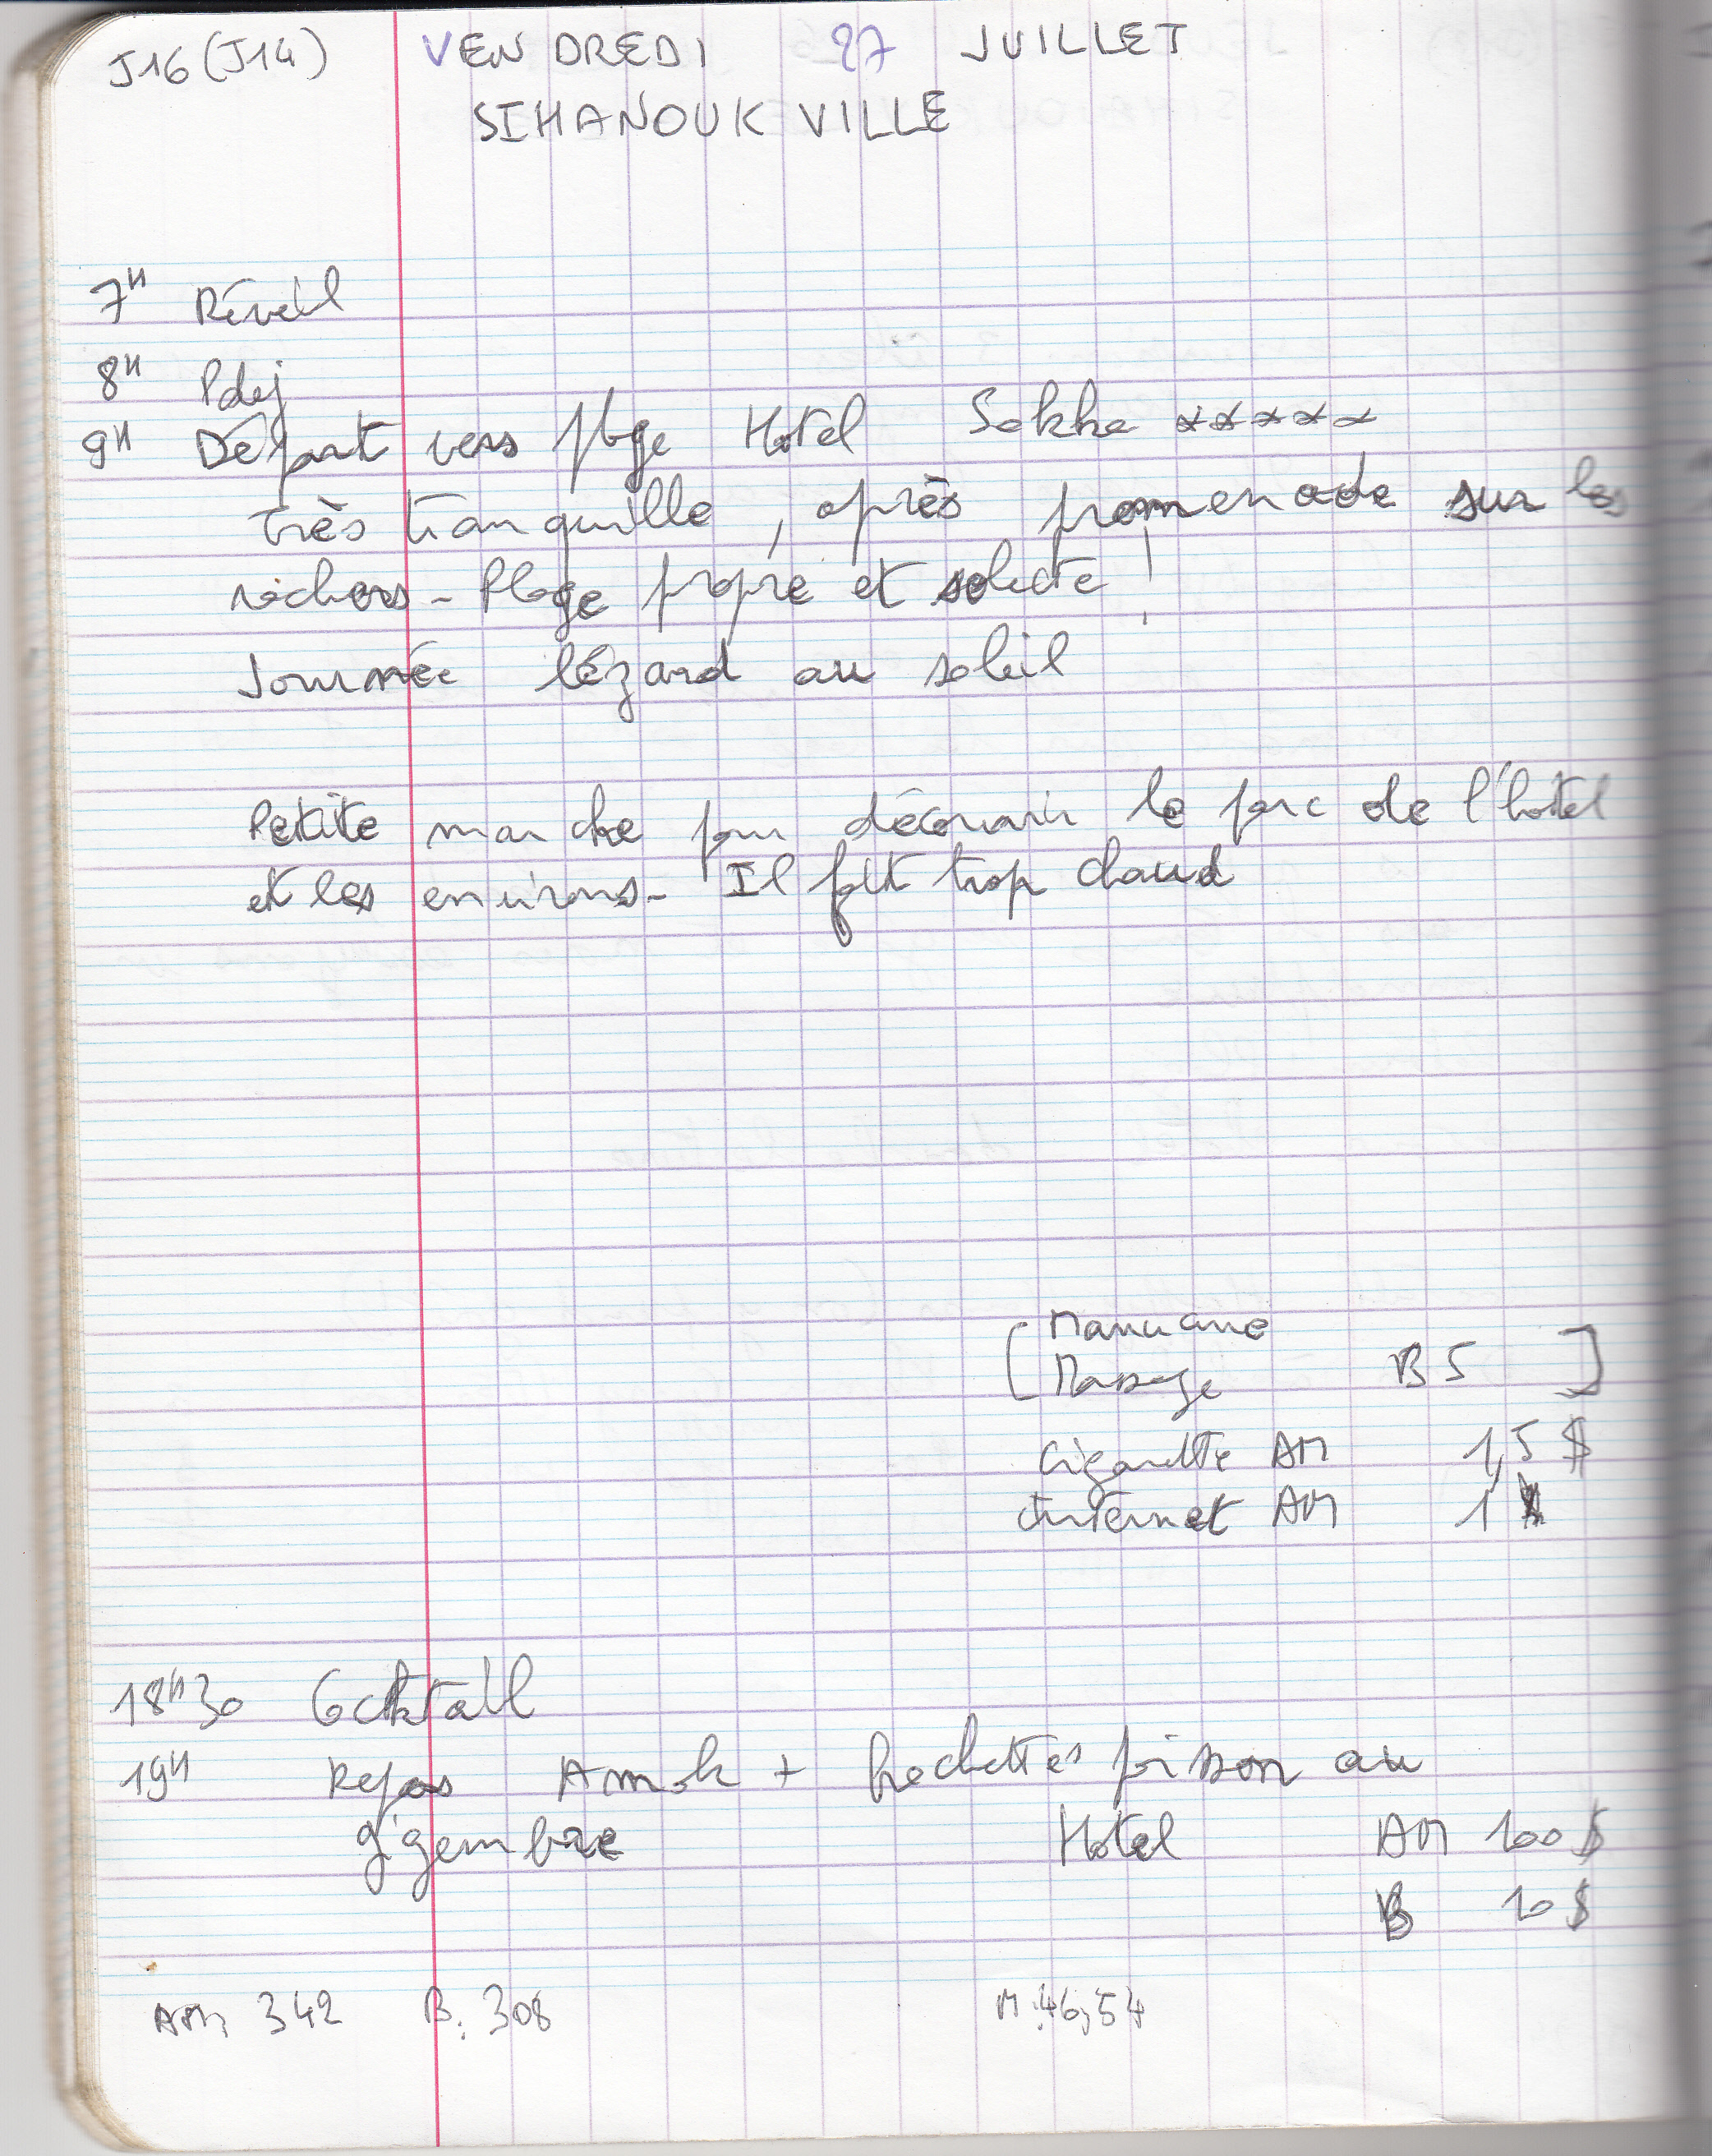 J16 (J14) VENDREDI 27 JUILLET
SIHANOUK VILLE
7H Réveil
8H Pdej
9H Départ vers plage Hotel Sokha *****
très tranquille, après promenade sur les
rochers - Plage propre et selecte !
Journée lézard au soleil
Petite marche pour découvrir le parc de l'hôtel
et les environs - Il fait trop chaud
[ Manucure
Massage B 5 ]
Cigarette AM 1,5 $
Internet AM 1 $
18H30 Cocktail
19H Repas Amok + brochettes poisson au
gigembre Hotel AM 100 $
B 10 $
AM, 342 B. 308 M. 46,54